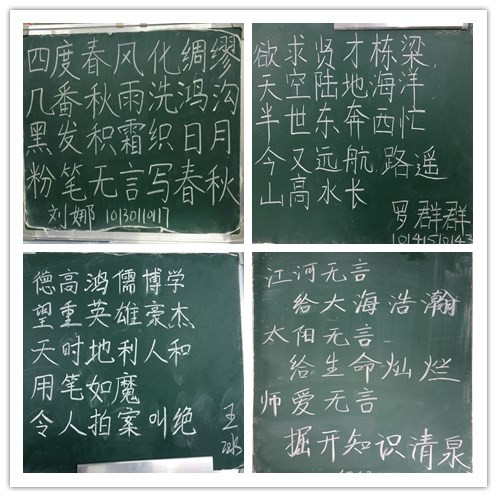 四度春风化绸缪
几番秋雨洗鸿沟
黑发积霜织日月
粉笔无言写春秋
刘娜 1013011017
欲求贤才栋梁
天空陆地海洋
半世东奔西忙
今又远航路遥
山高水长
罗群群
10141510143
德高鸿儒博学
望重英雄豪杰
天时地利人和
用笔如魔
令人拍案叫绝
王
江河无言
给大海浩瀚
太阳无言
给生命灿烂
师爱无言
掘开知识清泉